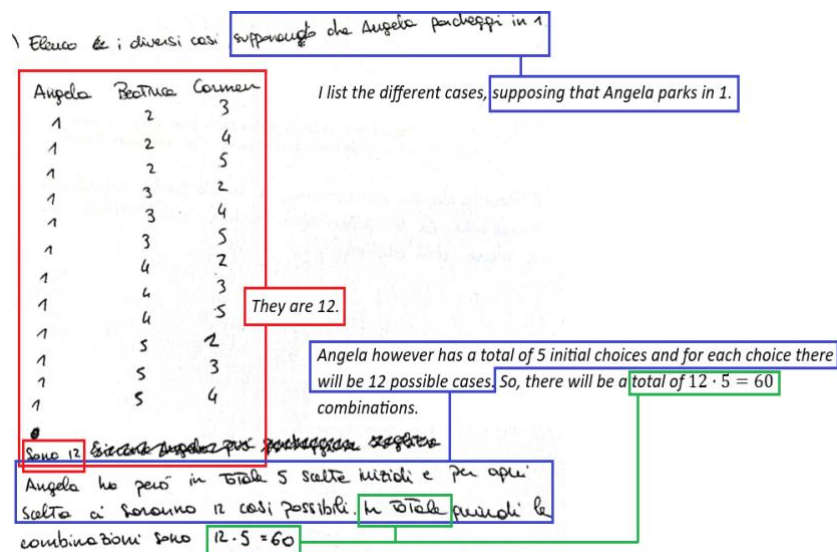 ) Elenco i diversi casi supponendo che Angela parcheggi in 1
I list the different cases, supposing that Angela parks in 1.
Angela Beatrice Carmen
1 2 3
1 2 4
1 2 5
1 3 2
1 3 4
1 3 5
1 4 2
1 4 3
1 4 5
1 5 2
1 5 3
1 5 4
They are 12.
Angela however has a total of 5 initial choices and for each choice there
will be 12 possible cases. So, there will be a total of 12 · 5 = 60
combinations.
Sono 12
Angela ha però in totale 5 scelte iniziali e per ogni
scelta ci saranno 12 casi possibili. In totale quindi le
combinazioni sono 12 · 5 = 60